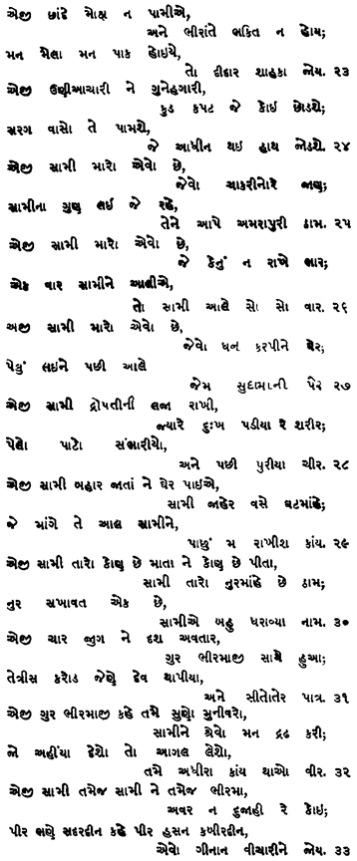 એજી છાંદે મોક્ષ ન પામીએ,
અને ભીરાંતે ભકિત ન હોય;
મન મેલા મન પાક હોઇયે,
તો દીદાર શાહકા જોય. ૨૩
એજી ઉણીઆચારી ને ગુનેહગારી,
કુડ કપટ જે કોઇ છોડશે;
સરગ વાસો તે પામશે,
જે આધીન થઇ હાથ જોડશે. ૨૪
એજી સામી મારો એવો છે,
જેવો ચાકરીનોરે જાણ;
સામીના ગુણ લઈ જે રહે,
તેને આપે અમરાપુરી ઠામ. ૨૫
એજી સામી મારો એવો છે,
જે કેનું ન રાખે ભાર;
એક વાર સામીને આલીએ,
તો સામી આલે સો સો વાર. ૨૬
અજી સામી મારો એવો છે,
જેવો ધન કરપીને ઘેર;
પેહું લઇને પછી આલે
જેમ સુદામાની પેર ૨૭
એજી સામી દ્રોપતીની લજા રાખી,
જ્યારે દુઃખ પડીયા રે શરીર;
પેલો પાટો સંભારીયો,
અને પછી પુરીયા ચીર. ૨૮
એજી સામી બહાર જાતાં ને ઘેર પાઇએ,
સામી જાહેર વસે ઘટમાંહે;
જે માંગે તે આલ સામીને,
પાછું મ રાખીશ કાંય. ૨૯
એજી સામી તારો કોણ છે માતા ને કોણ છે પીતા,
સામી તારો નુરમાંહે છે ઠામ;
નુર સખાવત એક છે,
સામીએ બહુ ધરાવ્યા નામ. ૩૦
એજી ચાર જુગ ને દશ અવતાર,
ગુર ભીરમાજી સાથે હુઆ;
તેત્રીસ કરોડ જેણે દેવ થાપીયા,
અને સીતોતેર પાત્ર. ૩૧
એજી ગુર ભીરમાજી કહે તમે સુણો મુનીવરો,
સામીને શ્રેવો મન દ્રઢ કરી;
જો અહીંયા દેશો તો આગલ લેશો,
તમે અધીરા કાંય થાઓ વીર. ૩૨
એજી સામી તમેજ સામી ને તમેજ ભીરમા,
અવર ન દુજાહી રે કોઇ;
પીર ભણે સદરદીન કહે પીર હસન કબીરદીન,
એવો ગીનાન વીચારીને જોય. ૩૩